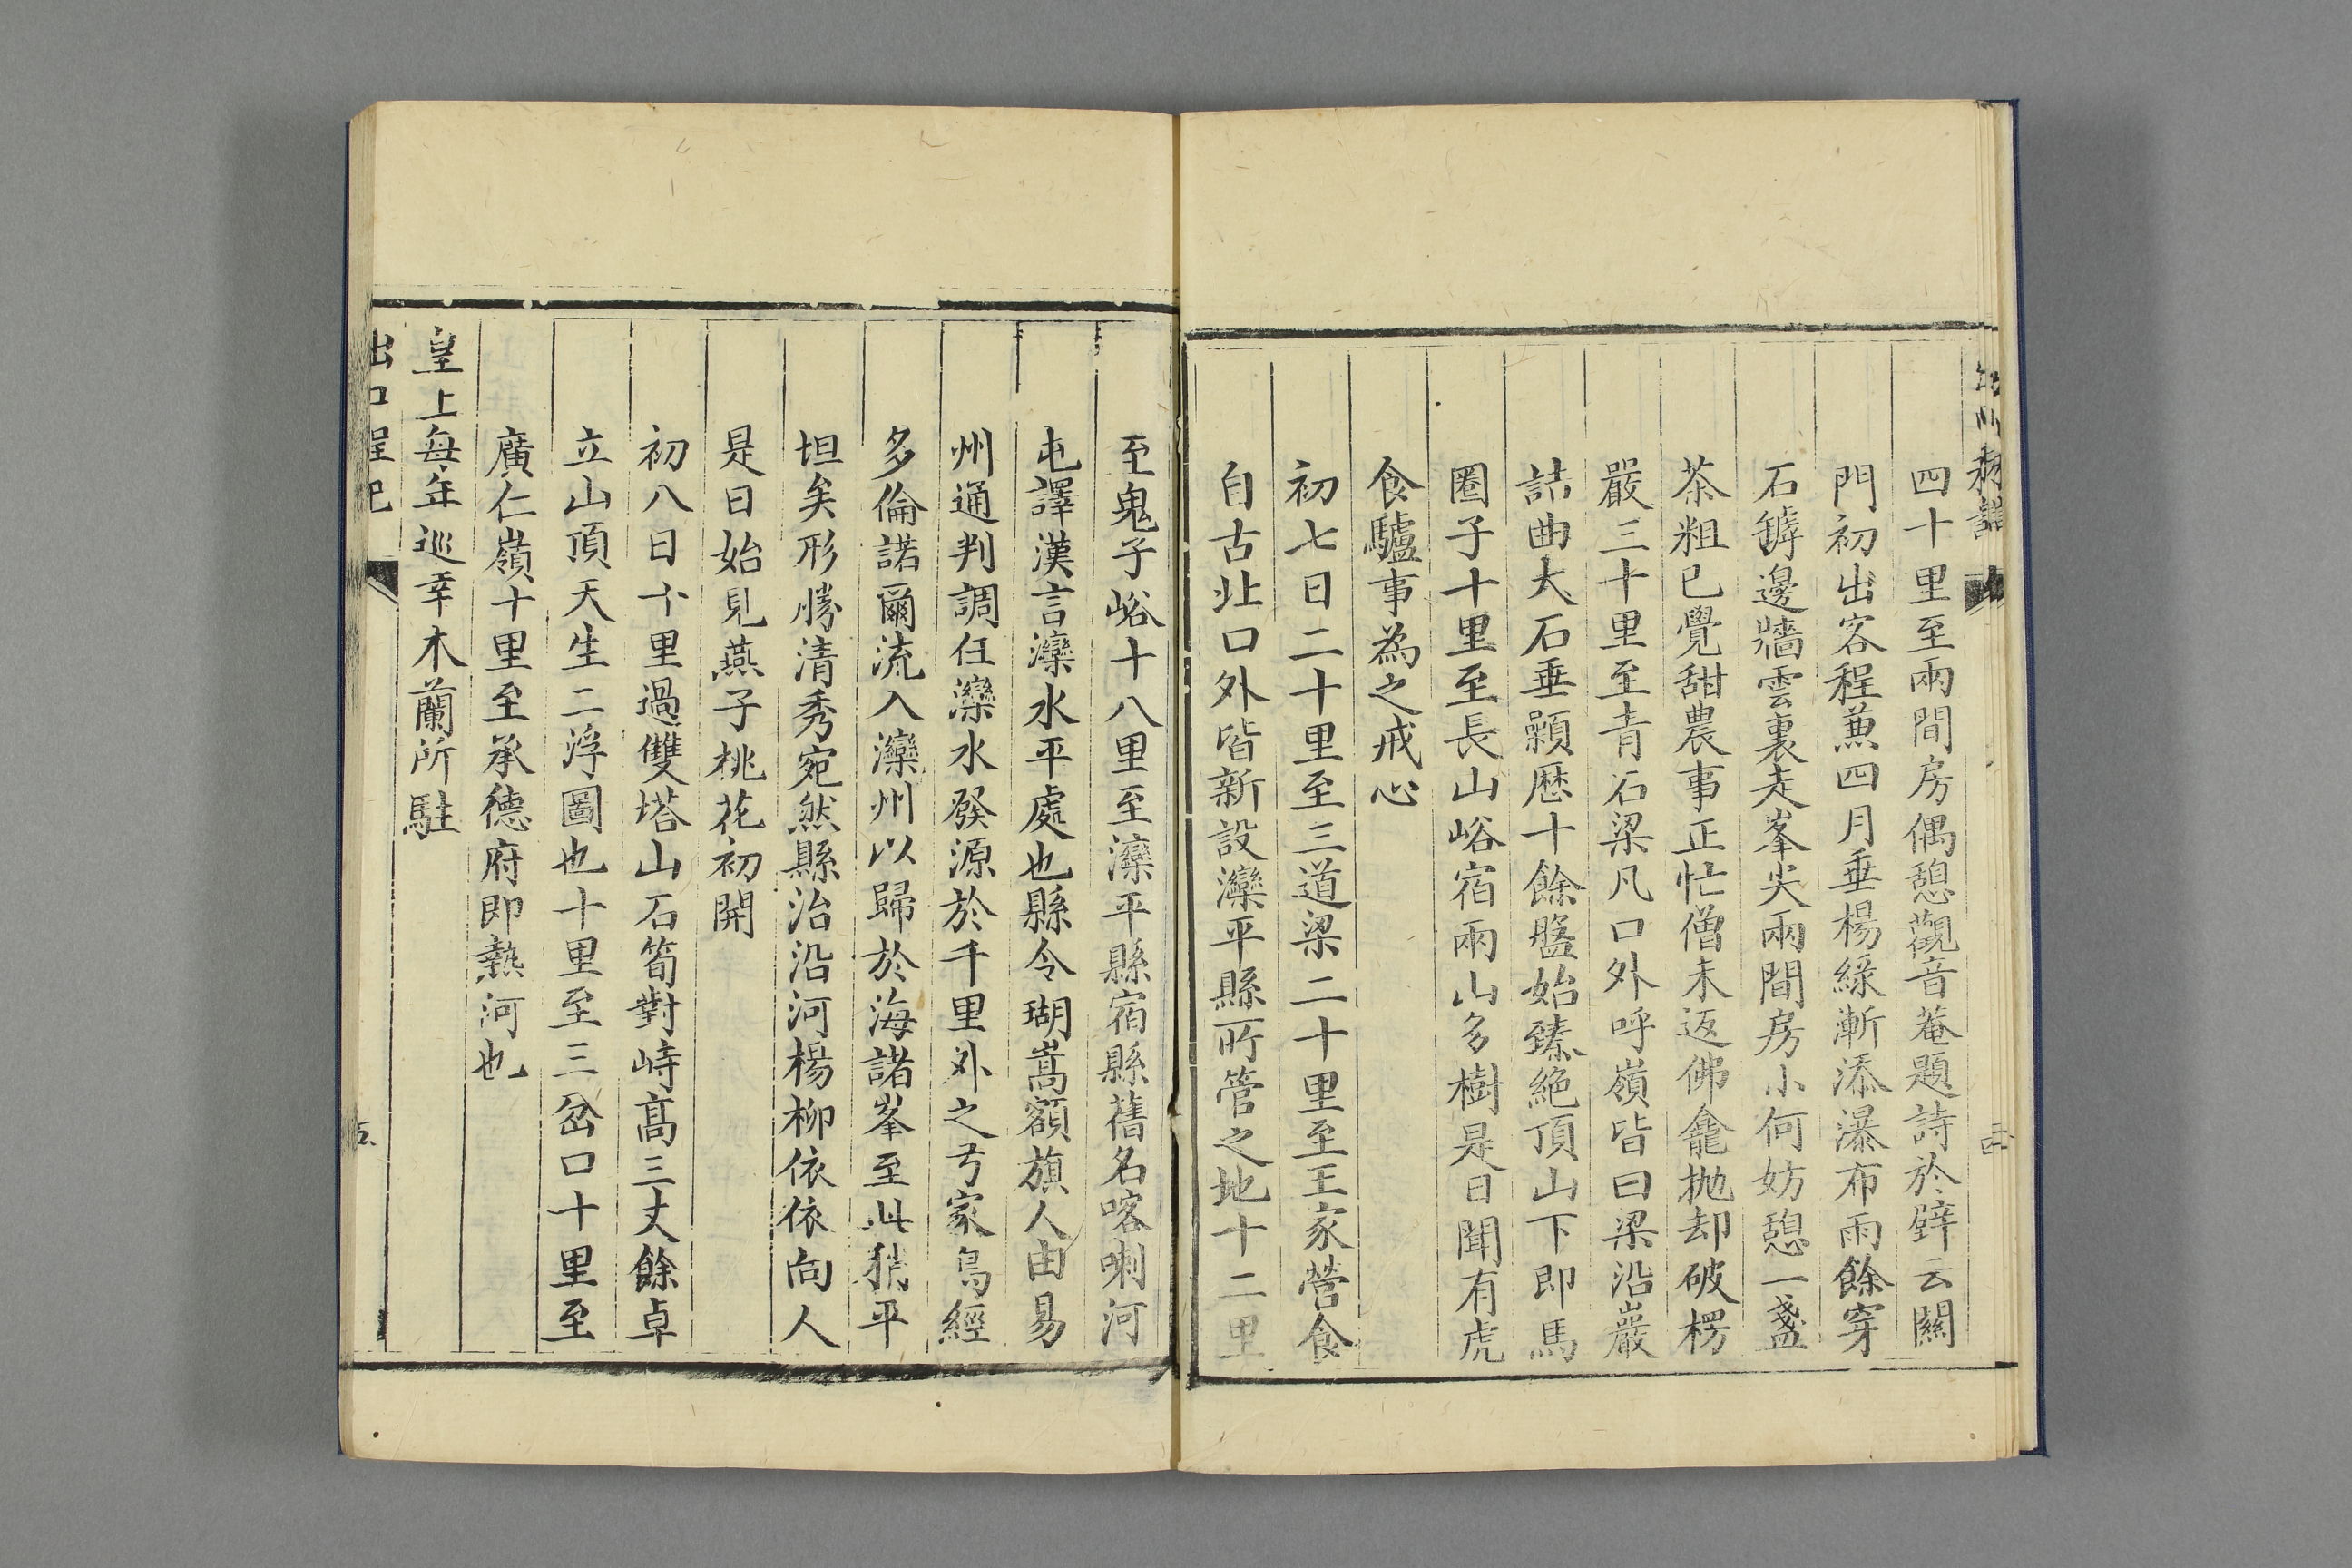 四十里至兩間房偶憩觀音菴題詩於壁云關
門初出客程蕭四月垂楊綠漸添瀑布雨餘穿
石罅邊牆雲裏走峯尖兩間房小何妨憩一盞
茶粗已覺甜農事正忙僧未返佛龕拋却破楞
嚴三十里至青石梁凡口外呼嶺皆曰梁沿巖
詰曲大石垂顙歷十餘盤始臻絶頂山下即馬
圈子十里至長山峪宿兩山多樹是日聞有虎
食驢事為之戒心
初七日二十里至三道梁二十里至王家營食
自古北口外皆新設灤平縣所管之地十二里
至鬼子峪十八里至灤平縣宿縣舊名喀喇河
屯譯漢言灤水平處也縣令瑚嵩額旗人由易
州通判調任灤水發源於千里外之兮家鳥經
多倫諾爾流入灤州以歸於海諸峯至此稍平
坦矣形勝清秀宛然縣治沿河楊柳依依向人
是日始見燕子桃花初開
初八日十里過雙塔山石筍對峙高三丈餘卓
立山頂天生二浮圖也十里至三岔口十里至
廣仁嶺十里至承德府即熱河也
皇上每年巡幸木蘭所駐
出口程記
五